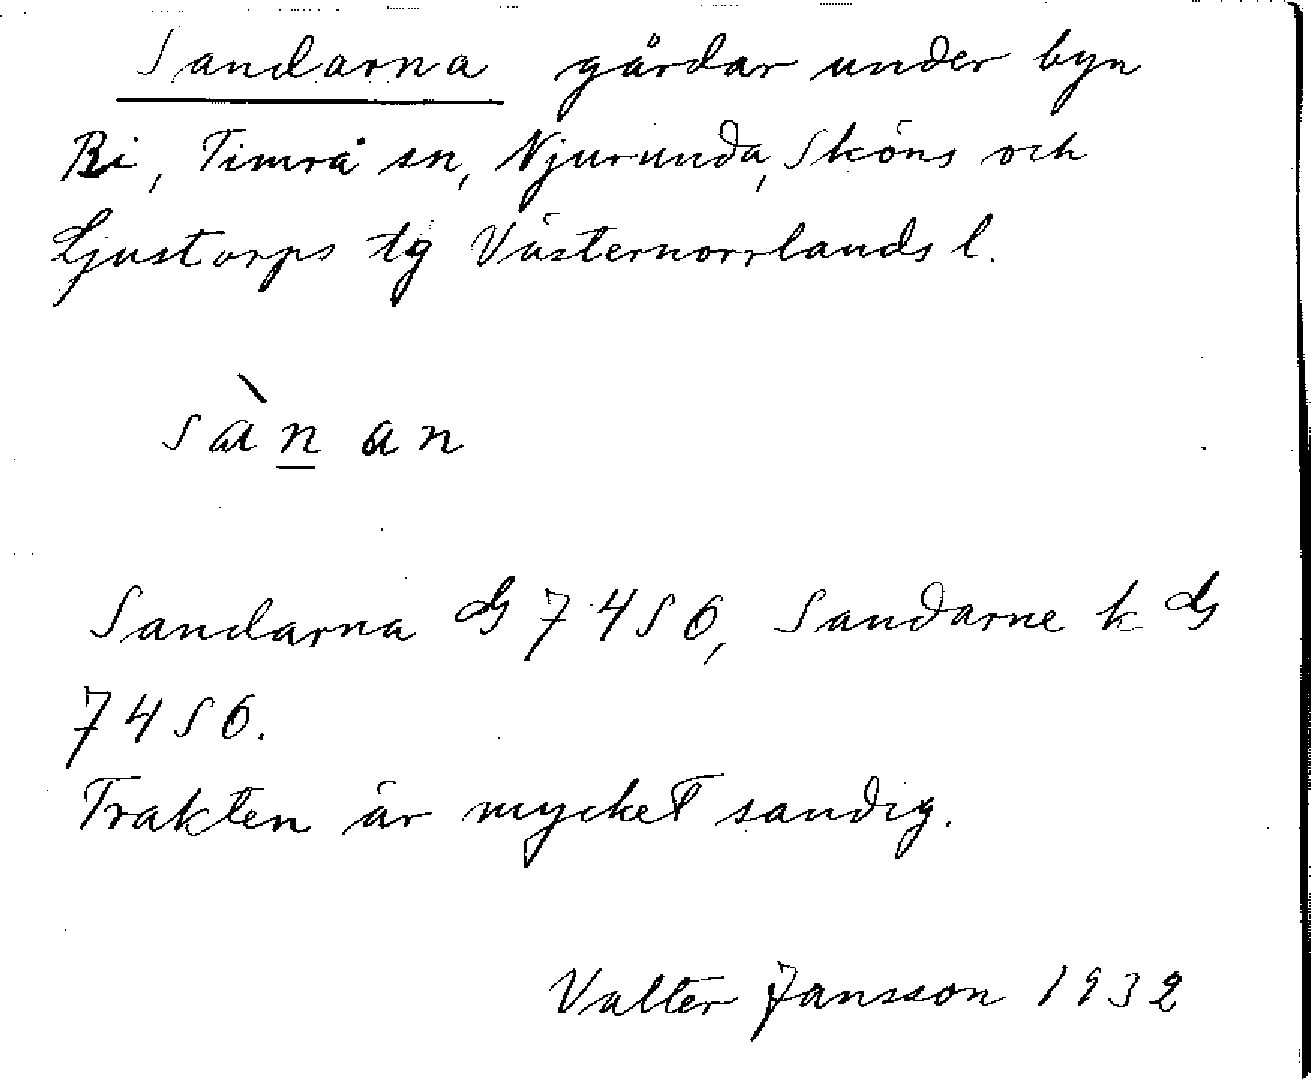 Sandarna gårdar under byn
Ri, Timrå sn, Njurunda, Sköns och
Ljustorps tg Västernorrlands l.
sàn an
Sandarna GS 74S6, Sandarne k GS
74S6.
Trakten är mycket sandig.
Valter Jansson 1932